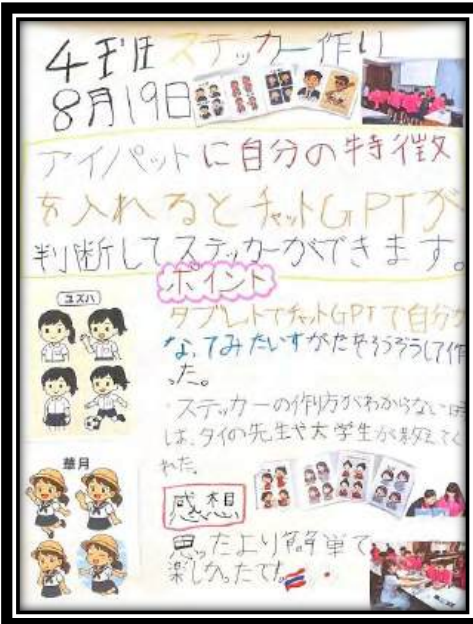 4班 ステッカー作り
8月19日
アイパットに自分の特徴
を入れるとチャットGPTが
判断してステッカーができます。
ポイント
タブレットでチャットGPTで自分が
なってみたいすがたをそうぞうして作
った。
・ステッカーの作り方がわからない時
は、タイの先生や大学生が教えてく
れた。
ユズハ
華月
感想
思ったより簡単で
楽しかったです。